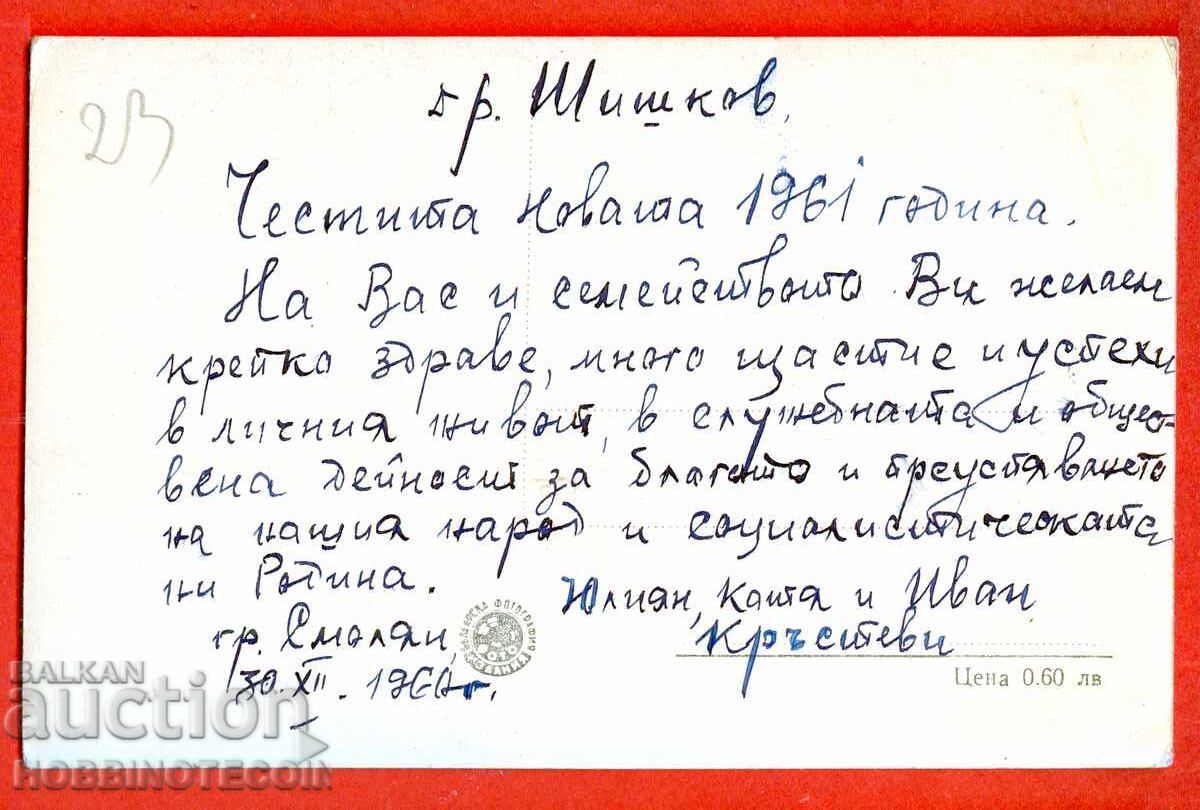 23
др. Шишков,
Честита новата 1961 година.
На Вас и семейството Ви желаем
крепко здраве, много щастие и успехи
в личния живот, в службната и общест-
вена дейност за благото и преуспяването
на нашия народ и социалистическата
ни Родина.
Юлиян, Катя и Иван
Кръстеви
гр. Смолян,
30.XII.1960 г.
БЪЛГАРСКА ФОТОГРАФИЯ
Цена 0.60 лв
BALKAN
auction
HOBBINOTECOIN